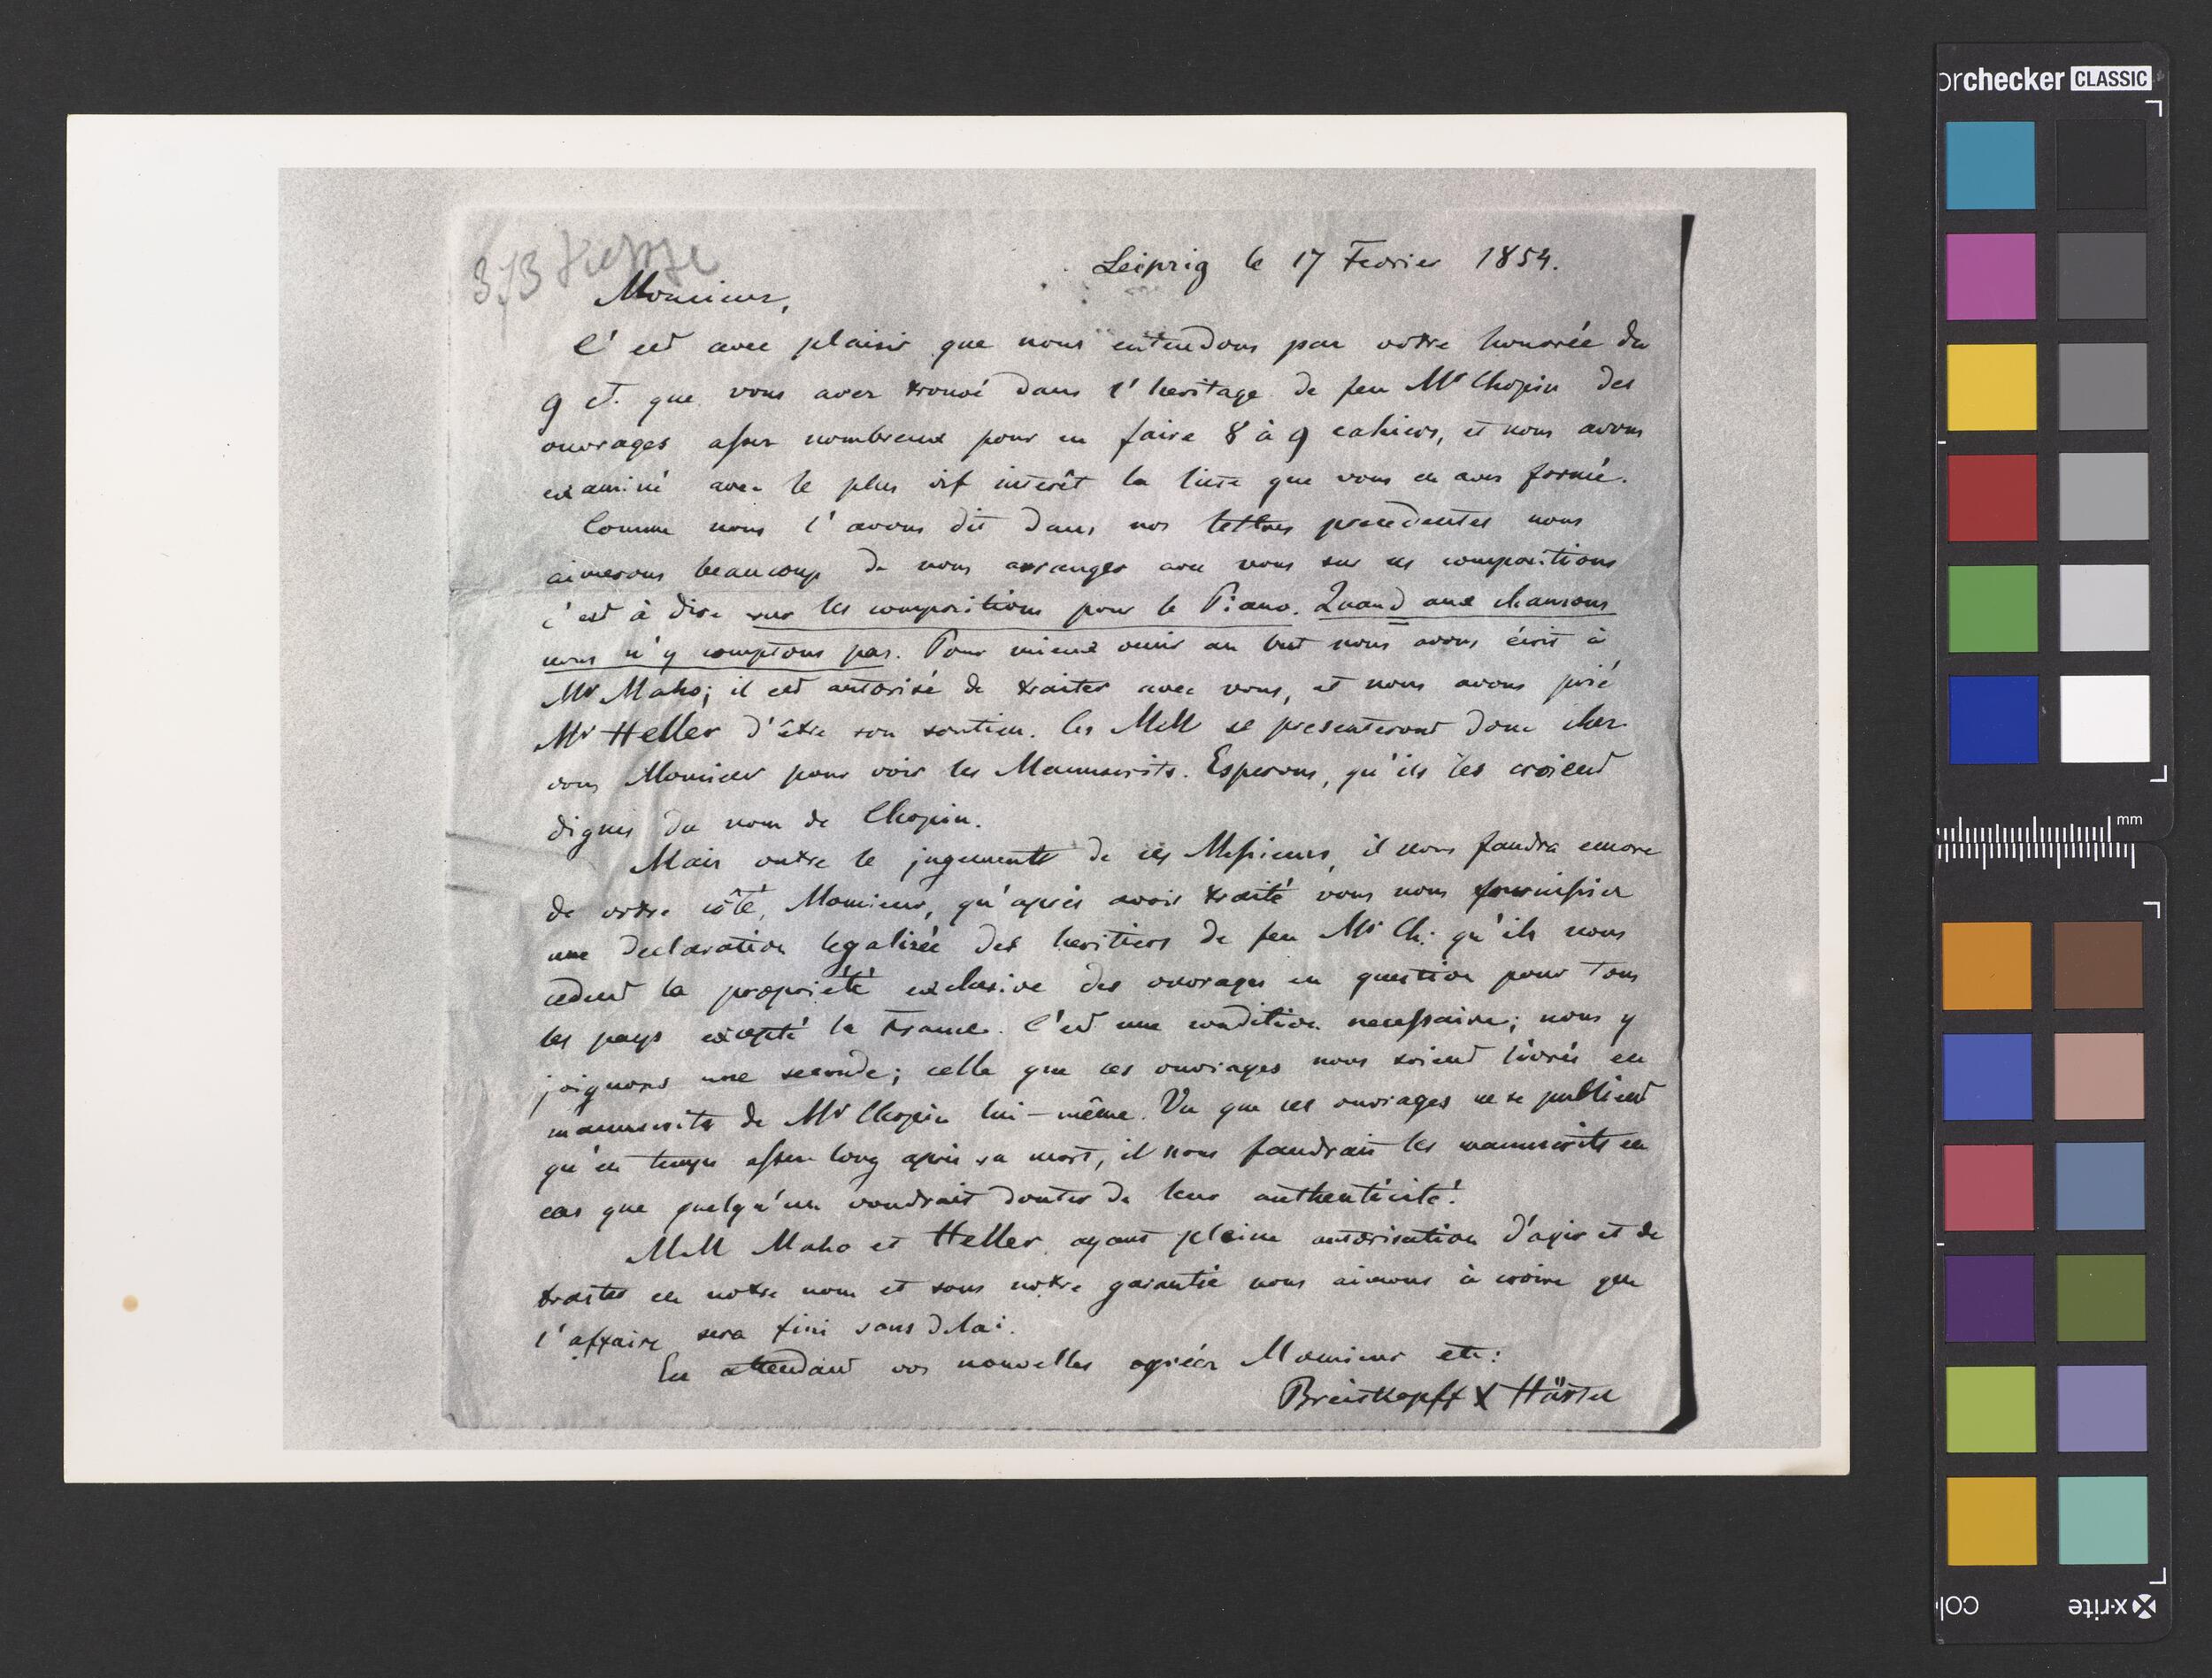 Leipzig le 17 Fevrier 1854.
3/3
Monsieur,
C'est avec plaisir que nous entendons par votre honorée du
9 ct. que vous avez trouvé dans l'heritage de feu Mr Chopin des
ouvrages assez nombreux pour en faire 8 à 9 cahiers, et nous avons
examiné avec le plus vif interêt la liste que vous en avez formé.
Comme nous l'avons dit dans nos lettres precedentes nous
aimerons beaucoup de nous arranger avec vous sur ces compositions
c'est à dire sur les compositions pour le Piano. Quand aux chansons
nous n'y comptons pas. Pour mieux venir au but nous avons écrit à
Mr Maho; il est autorisé de traiter avec vous, et nous avons prié
Mr Heller d'être son soutien. Ces MM se presenteront donc chez
vous Monsieur pour voir les Manuscrits. Esperons, qu'ils les croient
dignes du nom de Chopin.
Mais outre le jugements de ces Messieurs, il nous faudra encore
de votre côté, Monsieur, qu'après avoir traité vous nous fournissiez
une declaration legalisée des heritiers de feu Mr Ch: qu'ils nous
cedent la propriété exclusive des ouvrages en question pour tous
les pays excepté la France. C'est une condition necessaire; nous y
joignons une seconde; celle que ces ouvrages nous soient livrés en
manuscrits de Mr Chopin lui-même. Vu que ces ouvrages ne se publient
qu'en temps assez long après sa mort, il nous faudrait les manuscrits en
cas que quelqu'un voudrait douter de leur authenticité.
MM Maho et Heller ayant pleine autorisation d'agir et de
traiter en notre nom et sous notre garantie nous aimons à croire que
l'affaire sera fini sans delai.
En attendant vos nouvelles agréez Monsieur etc:
Breitkopff & Härtel
orchecker CLASSIC
mm
x-rite
col